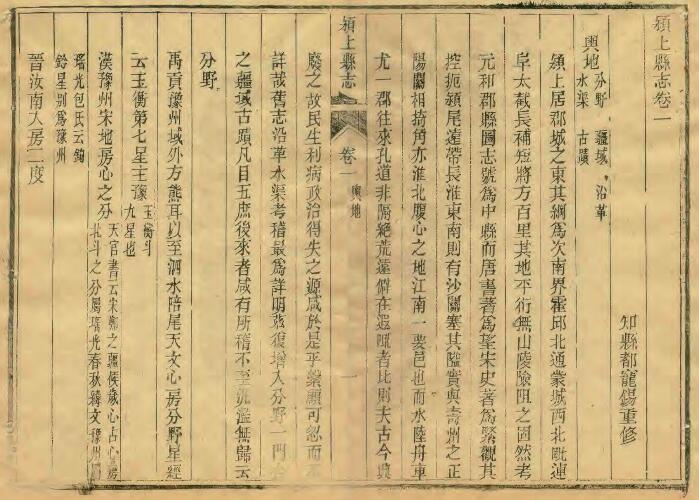 潁上縣志卷一
知縣都寵錫重修
輿地 分野 疆域 沿革
水渠 古蹟
潁上居郡城之東其綱為次南界霍邱北通蒙城西北毗連
阜太截長補短將方百里其地平衍無山陵險阻之固然考
元和郡縣圖志號為中縣而唐書著為望宋史著為緊觀其
控扼潁尾遠帶長淮東南則有沙關塞其隘實與壽州之正
陽關相掎角亦淮北腹心之地江南一要邑也而水陸舟車
尤一郡往來孔道非隔絕荒遠僻在遐陬者比則夫古今典
潁上縣志
卷一 輿地
一
廢之故民生利病政治得失之源咸於是乎繫顧可忽而不
詳哉舊志沿革水渠考稽最為詳明茲復增入分野一門合
之疆域古蹟凡目五庶後來者咸有所稽不至汎濫無歸云
分野
禹貢豫州域外方熊耳以至泗水陪尾天文心房分野星經
云玉衡第七星主豫 玉衡斗
九星也
漢豫州宋地房心之分 天官書云宋鄭之疆候歲心占心房
北斗之分屬瑤光春秋緯文豫州屬
瑤光包氏云鉤
鈐星別為豫州
晉汝南入房二度